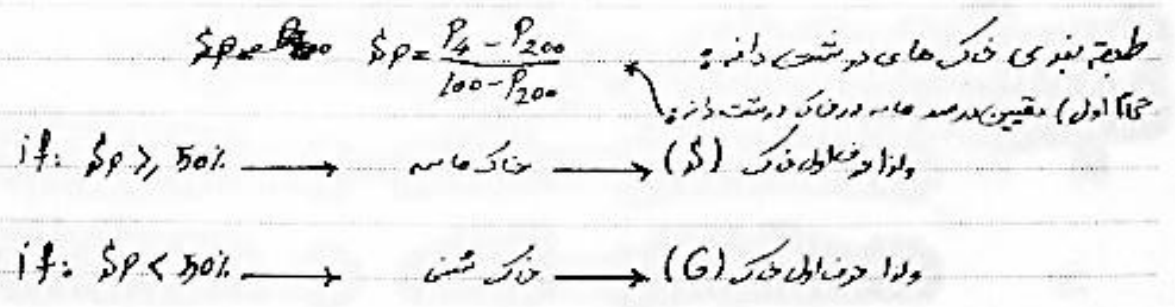 طبقه بندی خاک های درشت دانه: SP = (P4 - P200) / (100 - P200)
گام اول) تعیین درصد ماسه در خاک درشت دانه:
if: SP ≥ 50% → خاک ماسه → ولذا حرف اول خاک (S)
if: SP < 50% → خاک شنی → ولذا حرف اول خاک (G)